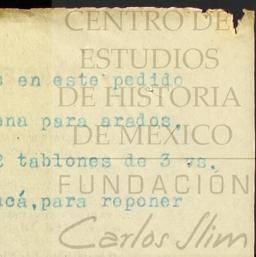 CENTRO DE
ESTUDIOS
en este pedido
DE HISTORIA
para arados.
DE MÉXICO
tablones de 3 vs.
FUNDACIÓN
para reponer
Carlos Slim